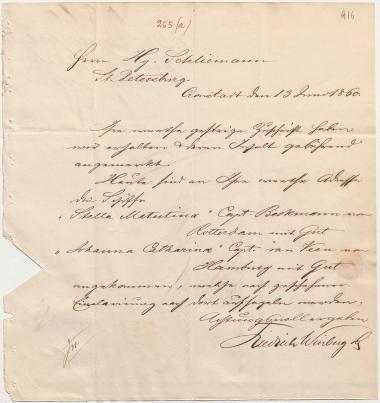 255 (a)
416
Herrn Hy. Schliemann
St. Petersburg
Cronstadt den 13 Juni 1860.
Ihre werthe gestrige Zuschrift haben
wir erhalten & deren Inhalt gebührend
angemerkt.
Heute sind an Ihre werthe Adresse
die Schiffe
"Stella Matutina" Capt. Beckmann von
Rotterdam mit Gut
"Johanna Catharina" Capt. van Veen von
Hamburg mit Gut
angekommen, welche nach geschehener
Einclarirung nach dort aufsegeln werden.
Achtungsvoll ergeben